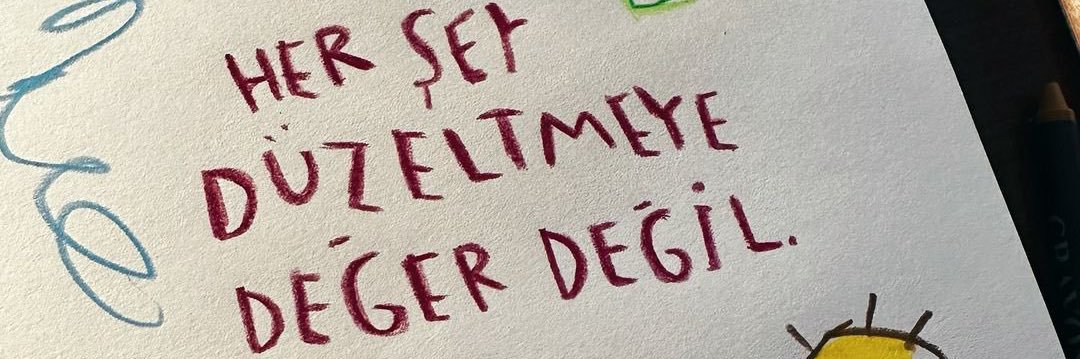 HER ŞEY
DÜZELTMEYE
DEĞER DEĞİL.